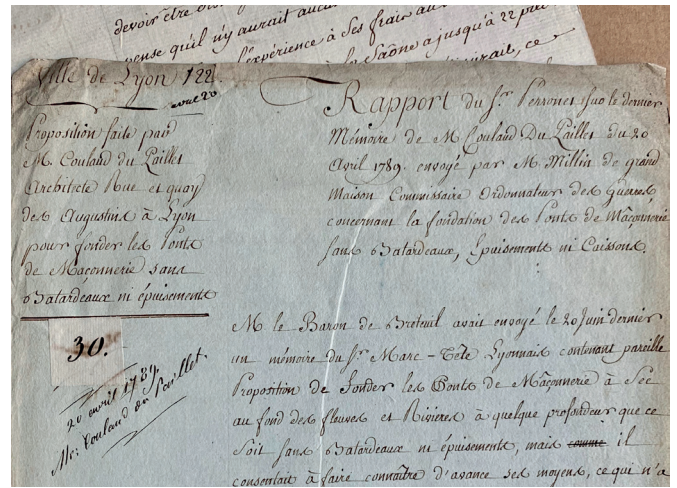 devoir être
pense qu'il n'y aurait aucun
l'expérience à Ses frais au
Saône a jusqu'à 22 pds
ce
Ville de Lyon 122.
avril 20
Proposition faite par
M. Couland du Paillet
Architecte Rue et quay
des Augustins à Lyon
pour fonder les Ponts
de Maçonnerie sans
Batardeaux ni épuisements
30.
20 avril 1789.
Mr: Couland du Paillet.
Rapport du Sr. Perronet sur le dernier
Mémoire de M Couland Du Paillet du 20
Avril 1789. envoyé par M. Millin de grand
Maison Commissaire Ordonnateur des Guerres,
concernant la fondation des Ponts de Mâçonnerie
sans Batardeaux, Epuisements ni Caissons.
M le Baron de Breteuil avait envoyé le 20 Juin dernier
un mémoire du Sr. Marc-Tête Lyonnais contenant pareille
Proposition de fonder les Ponts de Mâçonnerie à Sec
au fond des fleuves et Rivières à quelque profondeur que ce
Soit sans Batardeaux ni épuisements, mais comme il
consentait à faire connaître d'avance ses moyens, ce qui n'a